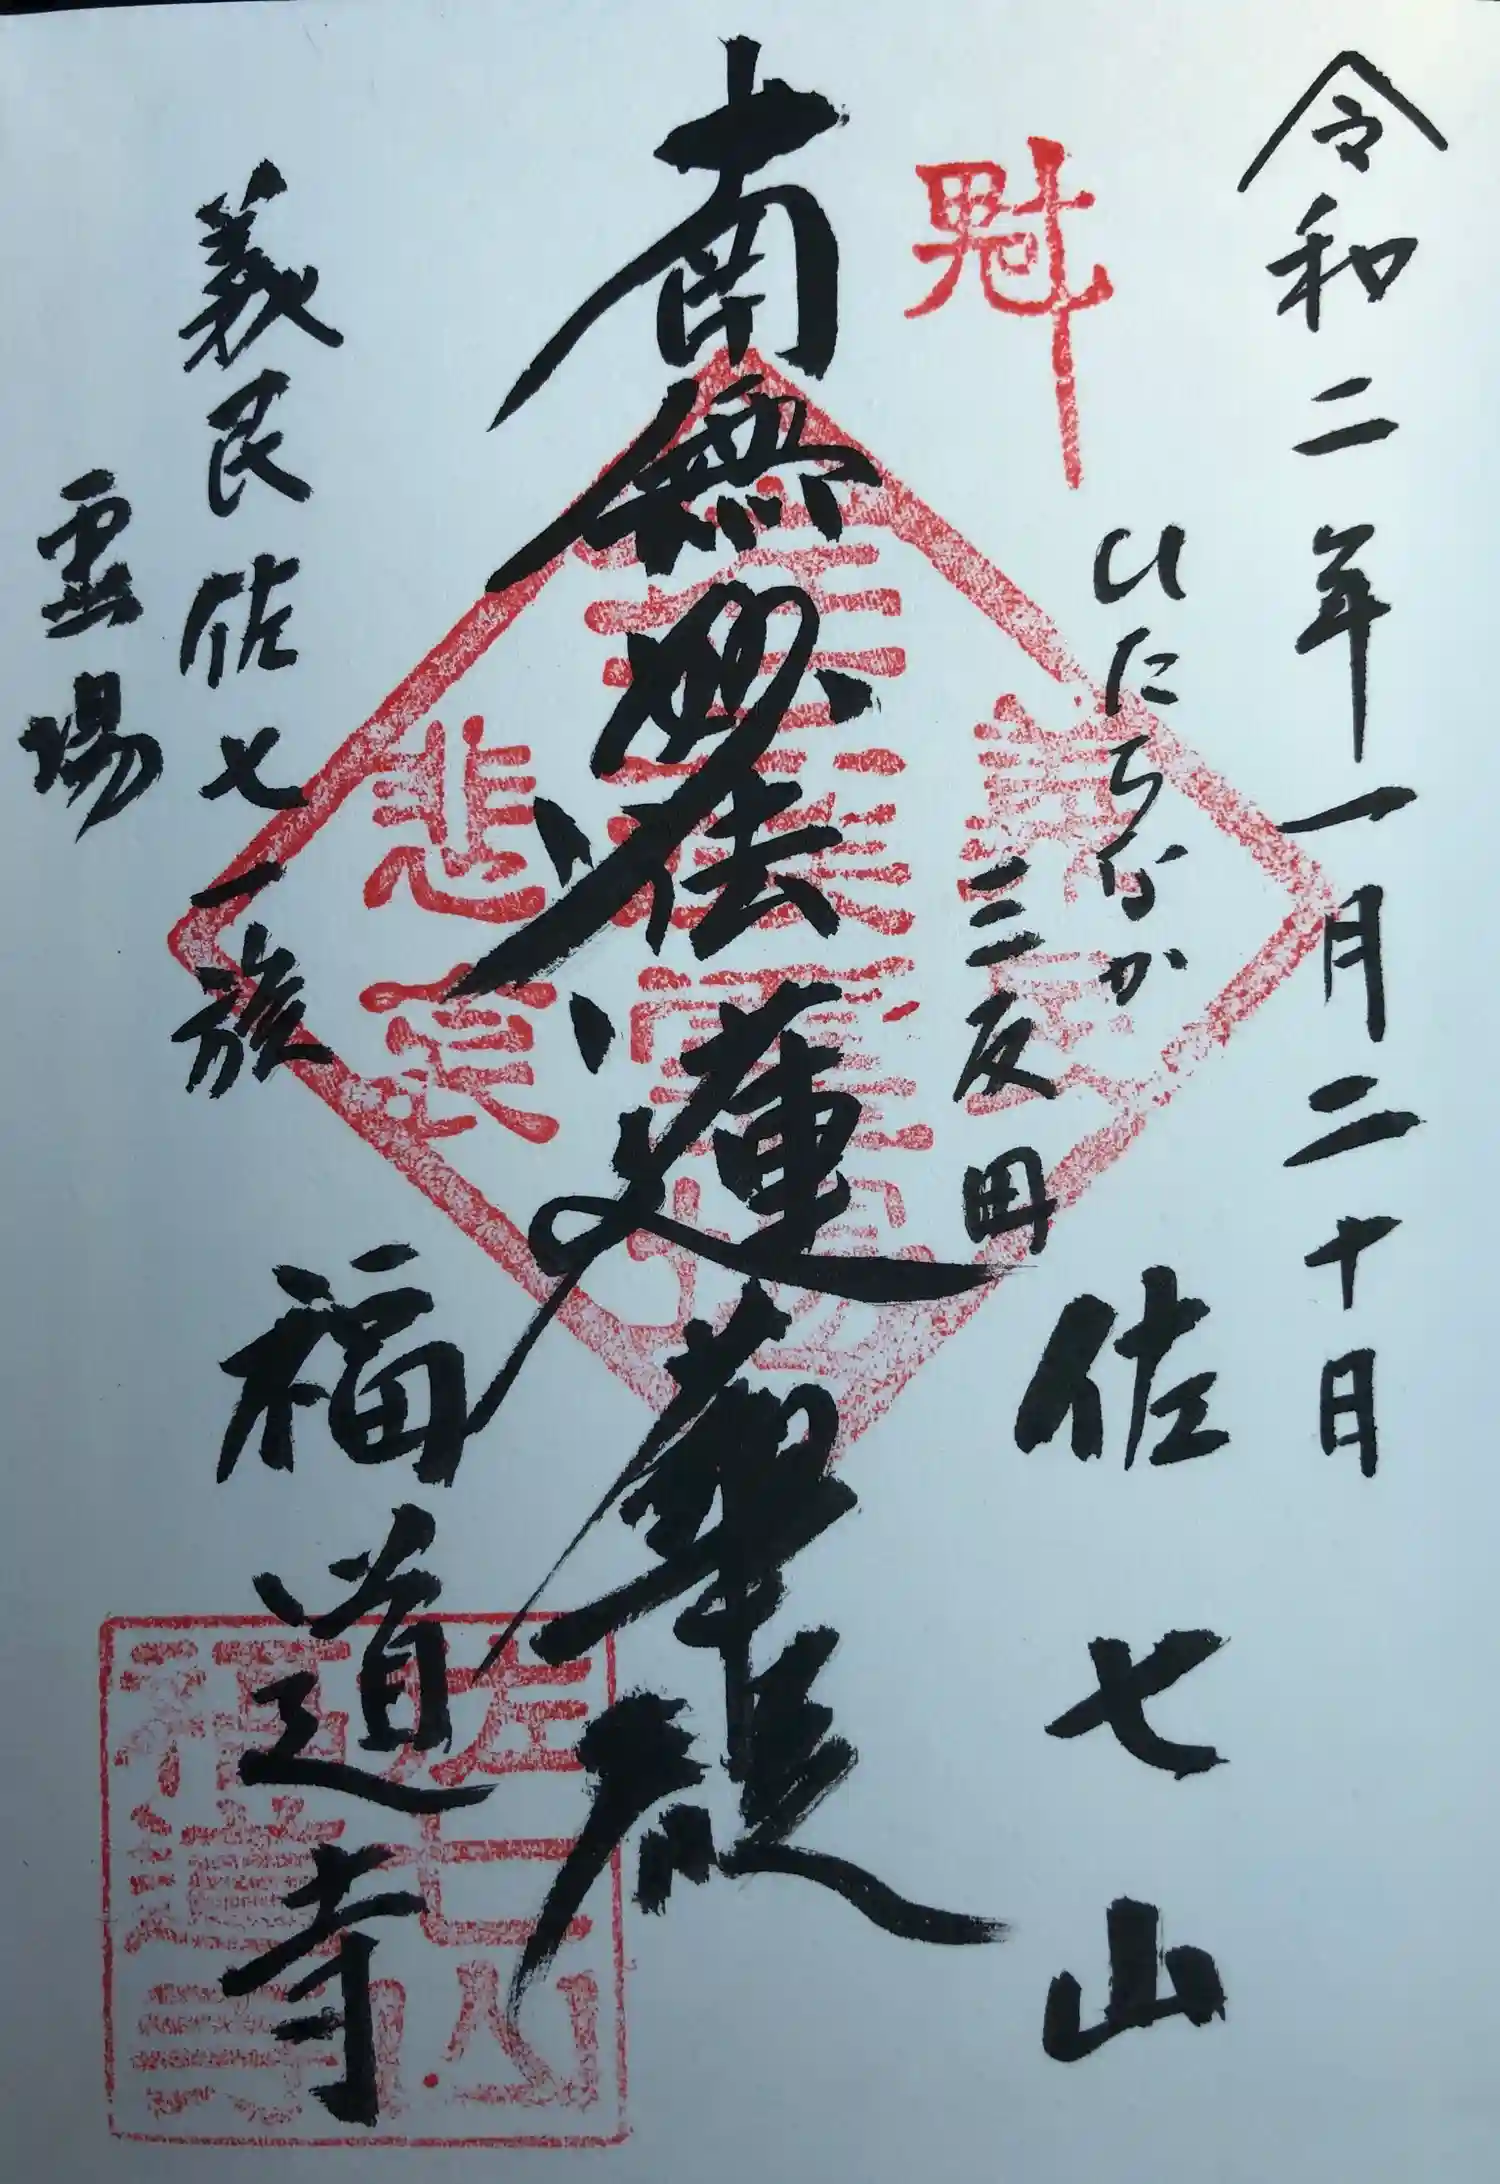 令和二年一月二十日
魁
ひにちなか
三反田
佐七山
南無妙法蓮華経
福道寺
義民佐七一族
霊場
悲哀
佐七山